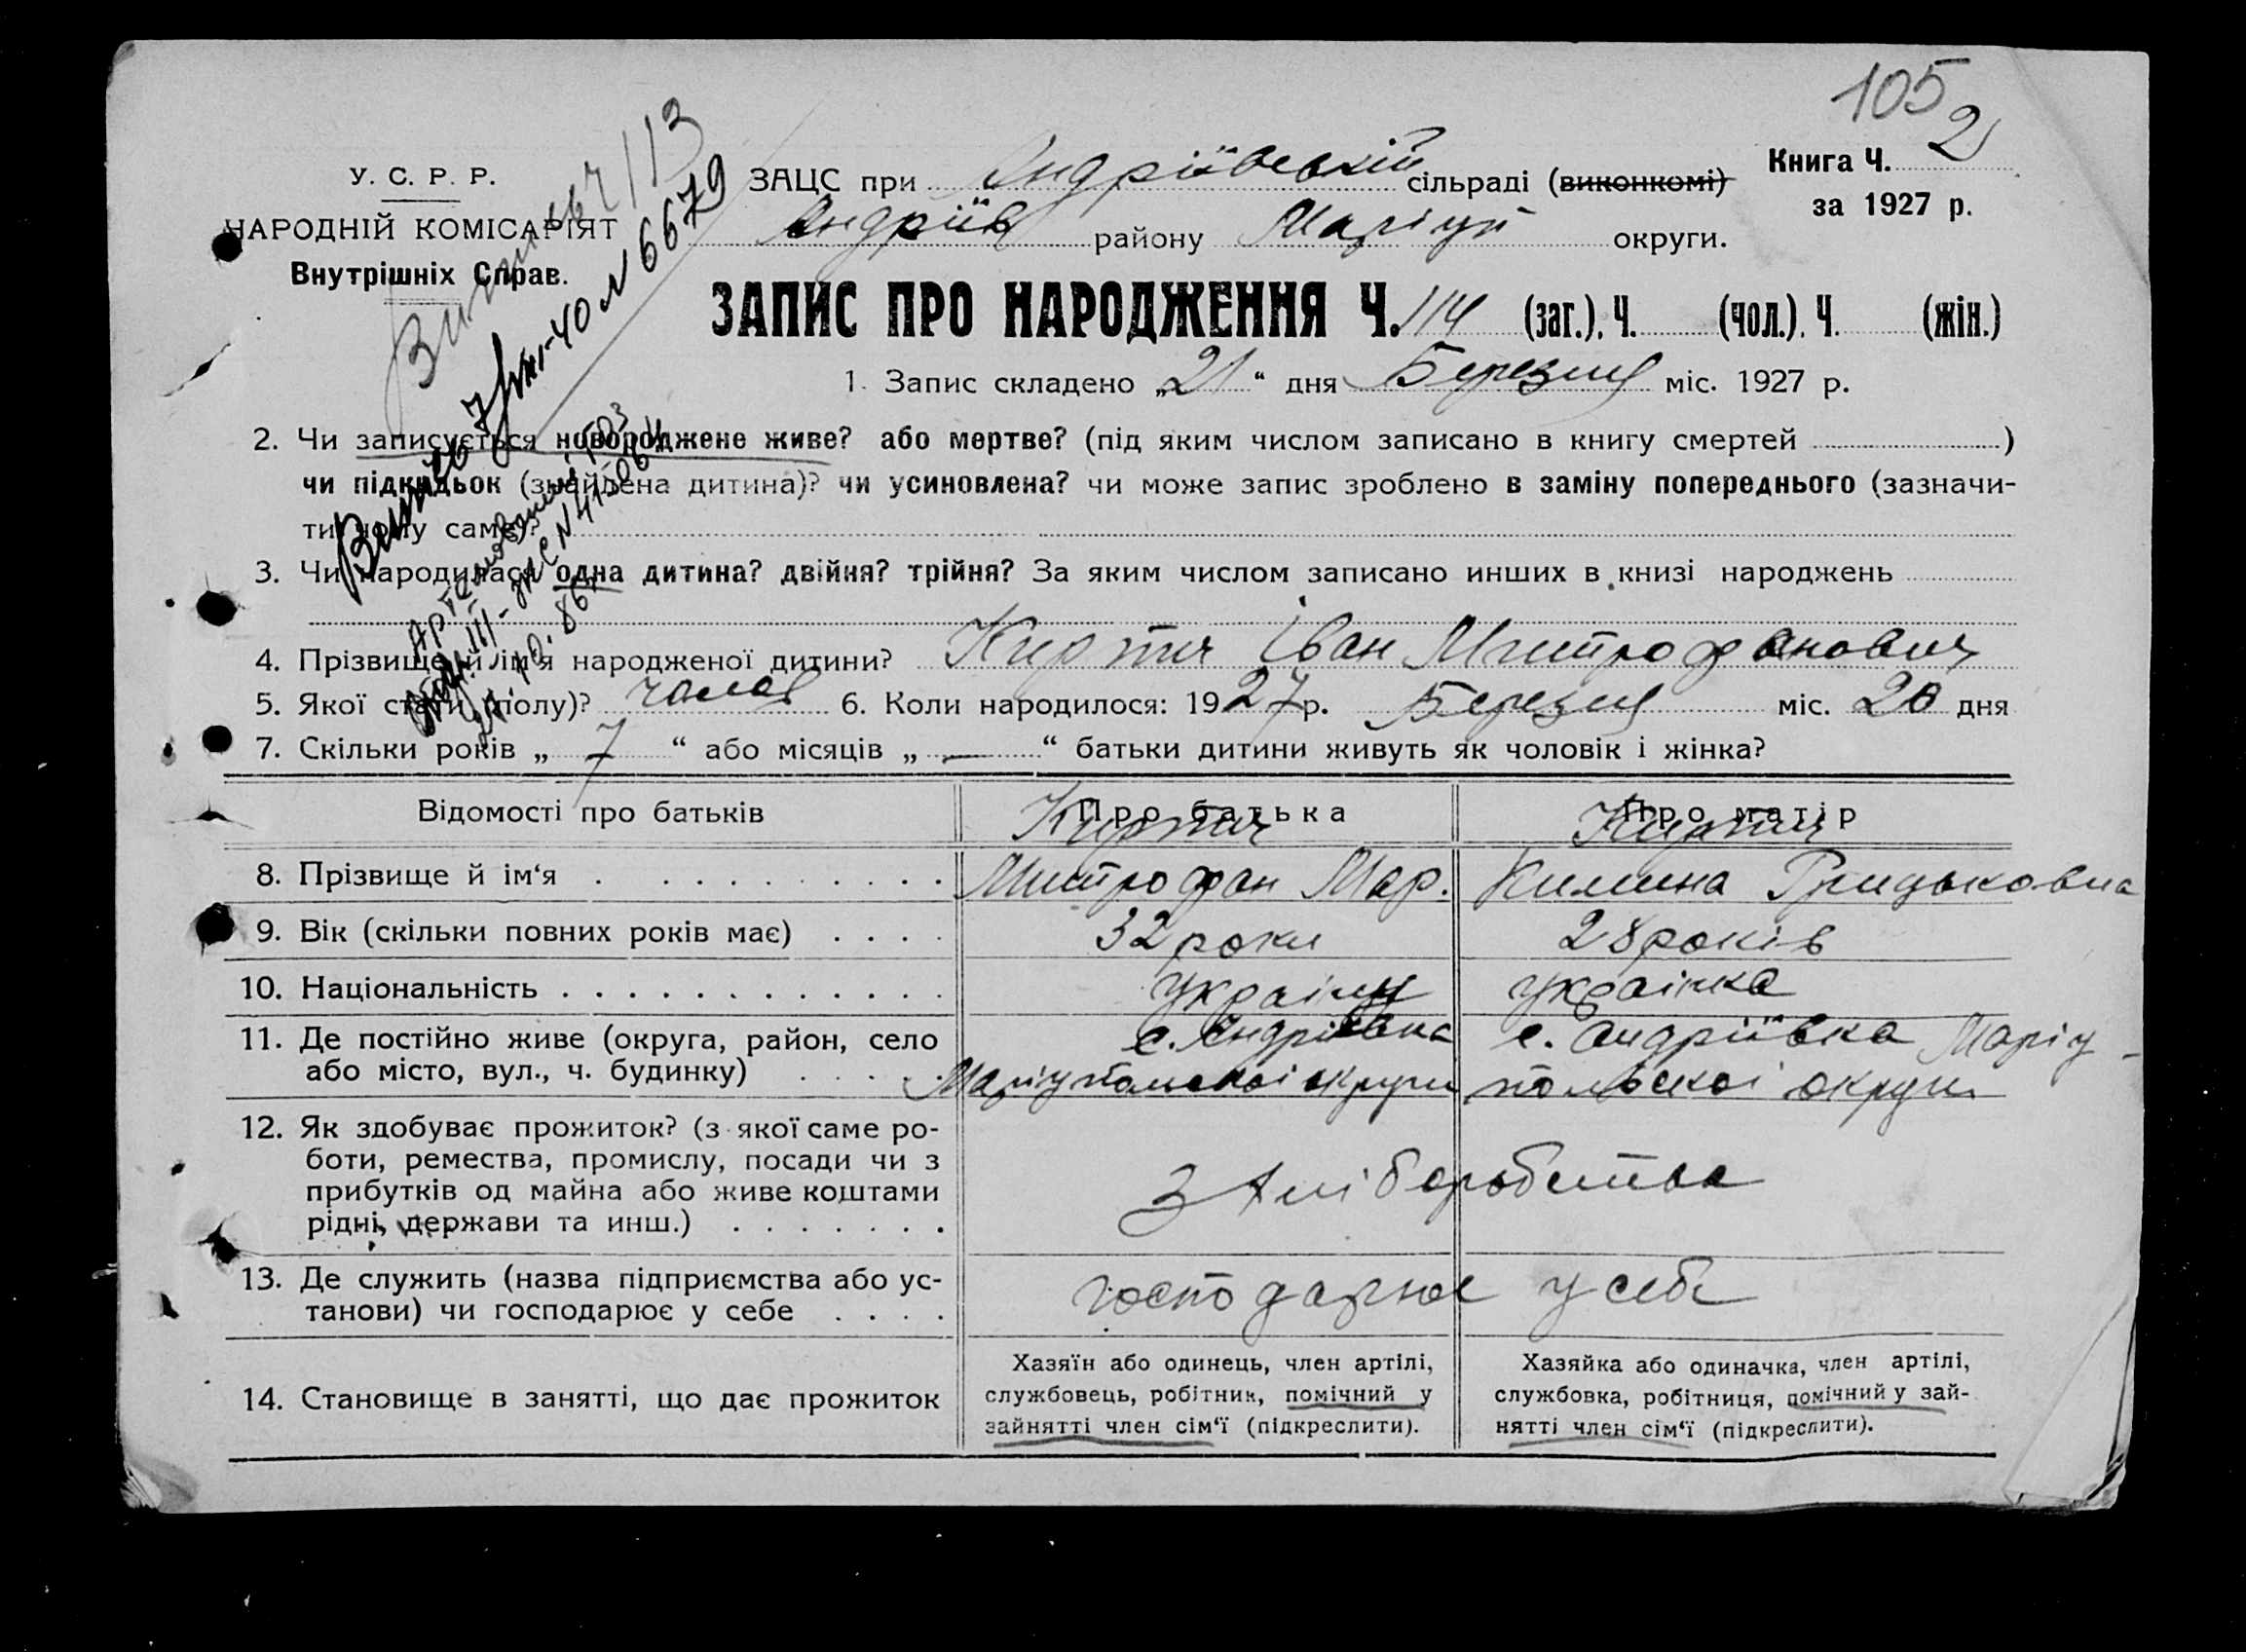 105
У. С. Р. Р.
НАРОДНІЙ КОМІСАРІЯТ
Внутрішніх Справ.
ЗАЦС при Андріївській сільраді (виконкомі)
Андріїв району Маріуп округи.
Книга Ч. 2
за 1927 р.
ЗАПИС ПРО НАРОДЖЕННЯ Ч. 114 (заг.), Ч. (чол.), Ч. (жін.)
1. Запис складено „21“ дня Березня міс. 1927 р.
2. Чи записується новороджене живе? або мертве? (під яким числом записано в книгу смертей )
чи підкидьок (знайдена дитина)? чи усиновлена? чи може запис зроблено в заміну попереднього (зазначи-
ти чому саме)?
3. Чи народилася одна дитина? двійня? трійня? За яким числом записано инших в книзі народжень
4. Прізвище й ім'я народженої дитини? Іван Митрофанович
5. Якої стати (полу)? чолов 6. Коли народилося: 1927 р. Березня міс. 20 дня
7. Скільки років „ 7 “ або місяців „ — “ батьки дитини живуть як чоловік і жінка?
Відомості про батьків Про батька Про матір
8. Прізвище й ім‘я Митрофан Мар. Килина Грицьковна
9. Вік (скільки повних років має) 32 роки 28 років
10. Національність українц українка
11. Де постійно живе (округа, район, село с. Андріївка с. Андріївка Маріу-
або місто, вул., ч. будинку) Маріупольскої округи польскої округи
12. Як здобуває прожиток? (з якої саме ро-
боти, ремества, промислу, посади чи з
прибутків од майна або живе коштами
рідні, держави та инш.)
З хліборобства
13. Де служить (назва підприємства або ус-
танови) чи господарює у себе
господарює у себе
14. Становище в занятті, що дає прожиток
Хазяїн або одинець, член артілі,
службовець, робітник, помічний у
зайнятті член сім‘ї (підкреслити).
Хазяйка або одиначка, член артілі,
службовка, робітниця, помічний у зай-
нятті член сім‘ї (підкреслити).